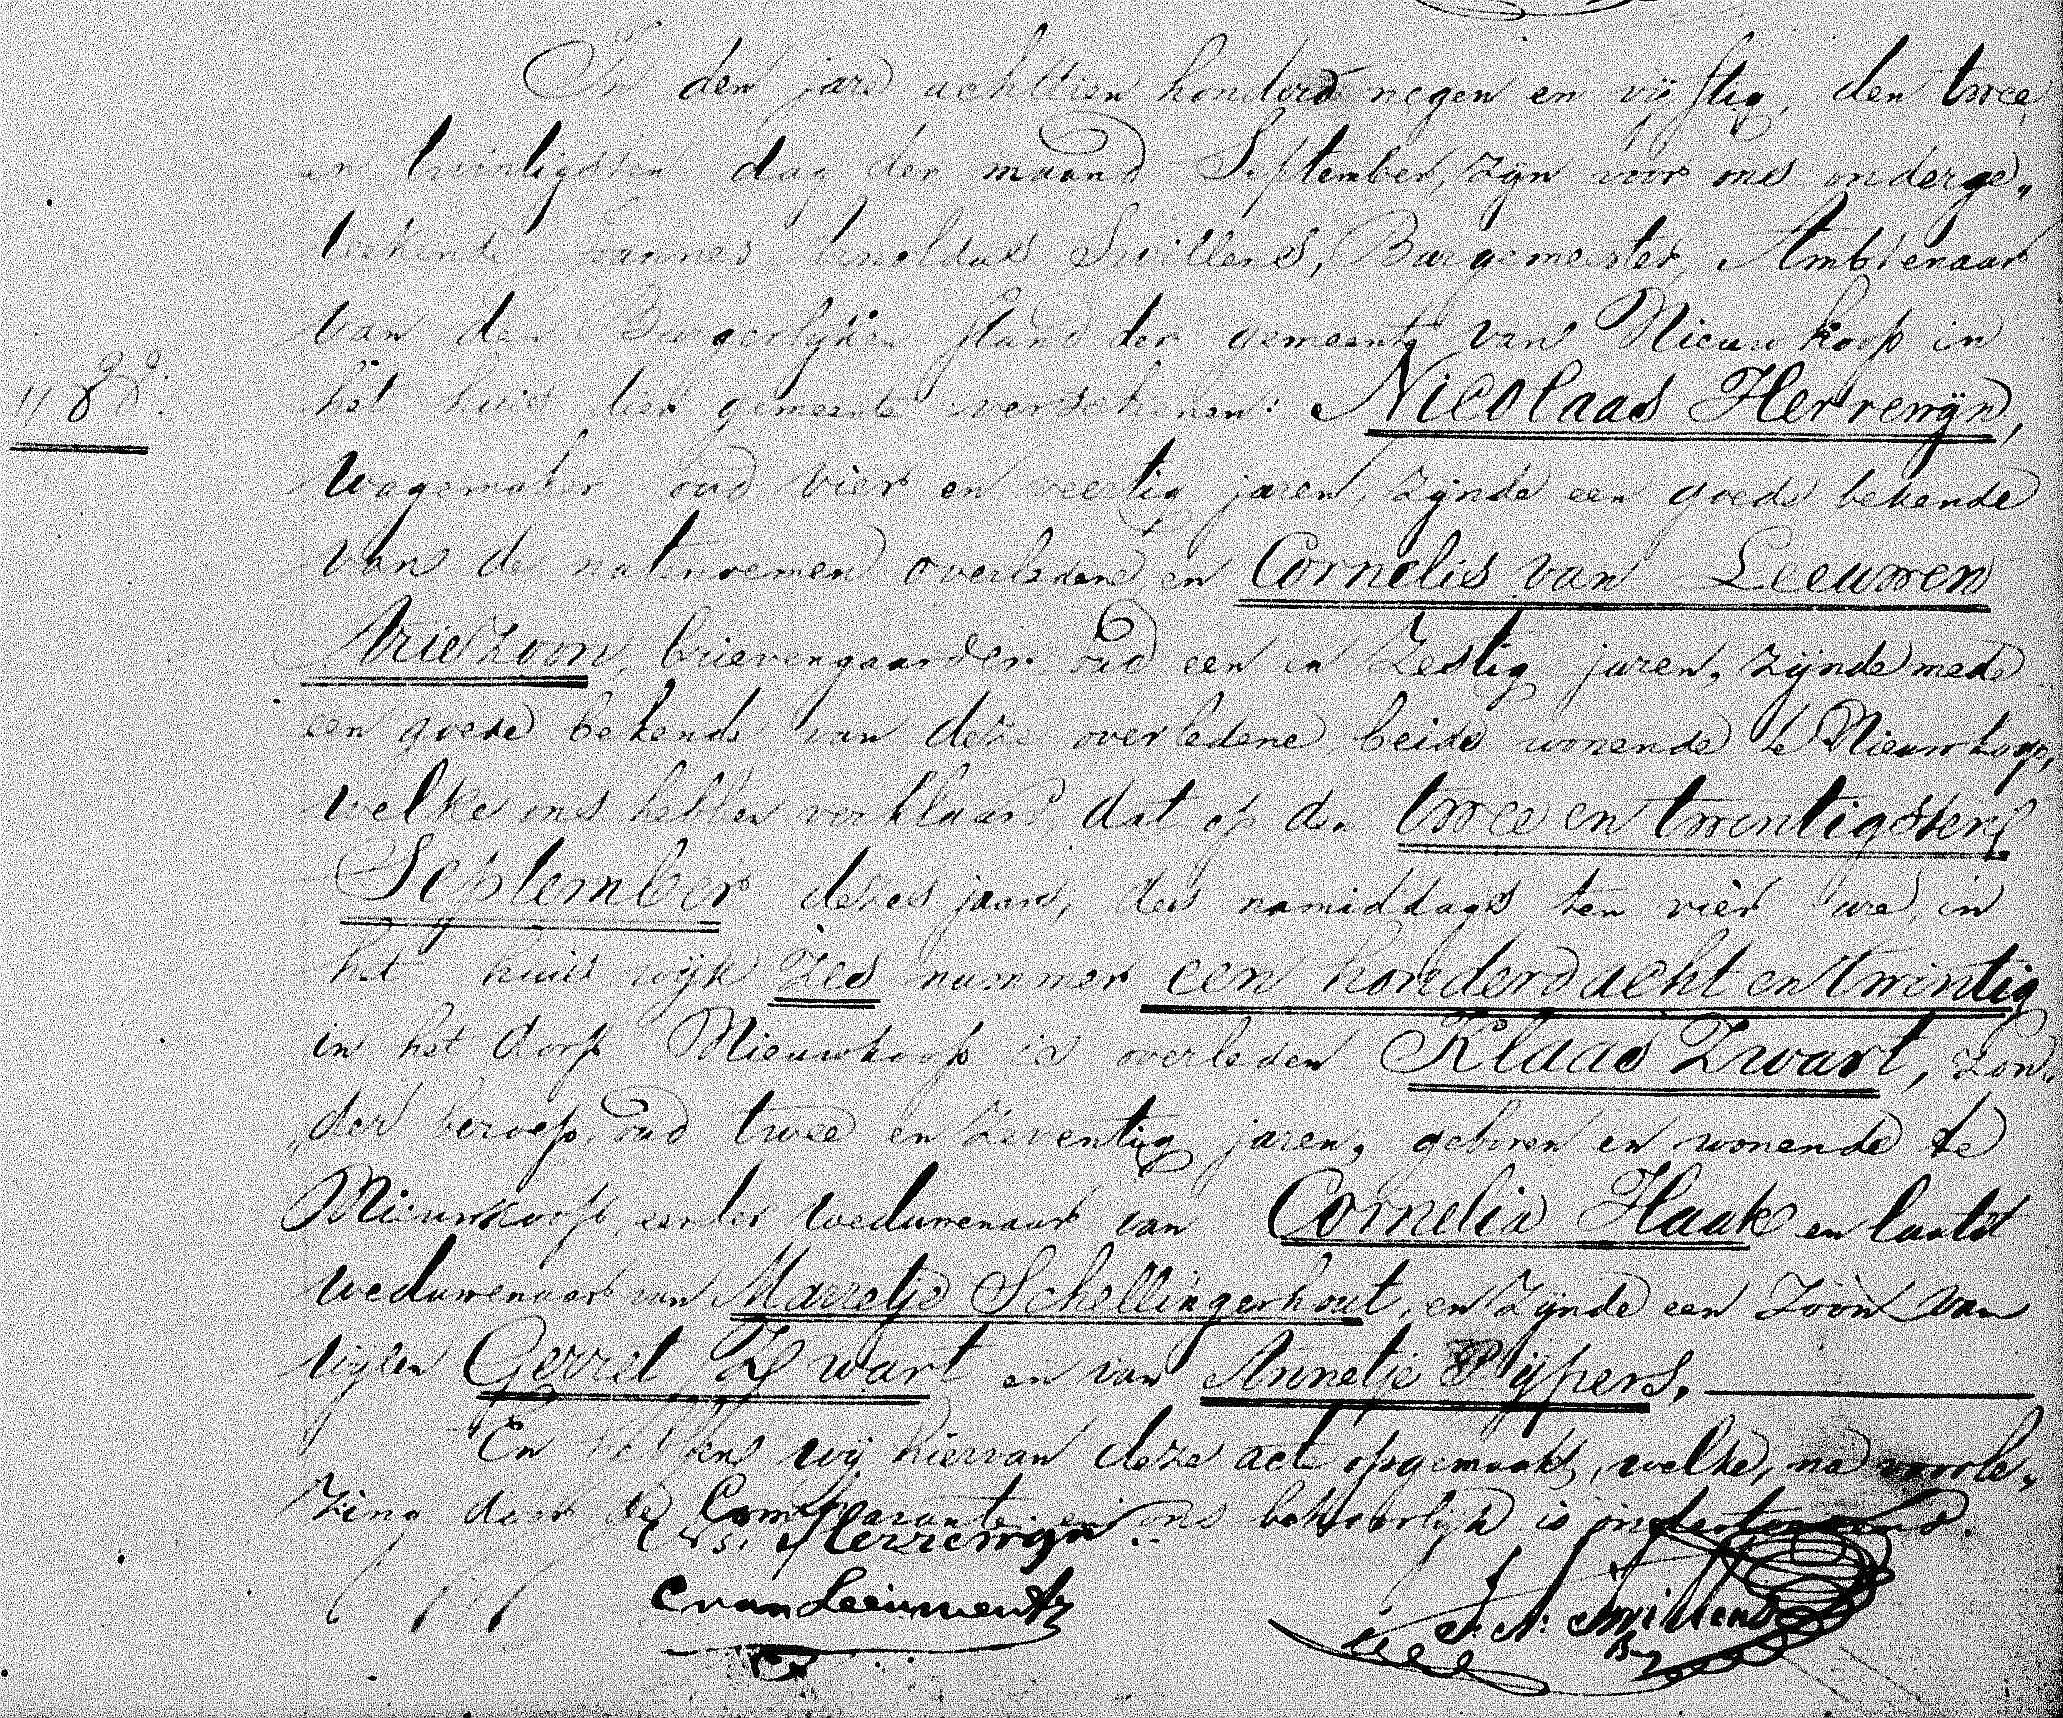 In den jare achttien honderd negen en vijftig, den twee
en twintigsten dag der maand September, zijn voor ons onderge„
tekende Swillens, Burgemeester, Ambtenaar
van den Burgerlijken stand der gemeente van Nieuwkoop in
N 88. het huis der gemeente verschenen: Nicolaas Herrewijn,
wagemaker oud vier en veertig jaren, zijnde een goede bekende
van de natenoemen overledene, en Cornelis van Leeuwen
Ariezoon, brievengaarder oud een en zestig jaren, zijnde mede
een goede bekende van deze overledene beide wonende te Nieuwkoop,
welke ons hebben verklaard, dat op den twee en twintigsten
September dezes jaars, des namiddags ten vier ure, in
het huis wijk zes nummer een honderd acht en twintig
in het dorp Nieuwkoop is overleden Klaas Zwart, zon„
der beroep, oud twee en zeventig jaren, geboren en wonende te
Nieuwkoop, eerder weduwenaar van Cornelia Haak en laatst
weduwenaar van Marretje Schellingerhout, en zijnde een zoon van
wijlen Gerret Zwart en van Annetje Pijpers.
En hebben wij hiervan deze act opgemaakt, welke, na voorle„
zing door de Comparanten en ons behoorlijk is onderteekend.
Ns. Herrewijn.
C van Leeuwen Az
J. A. Swillens